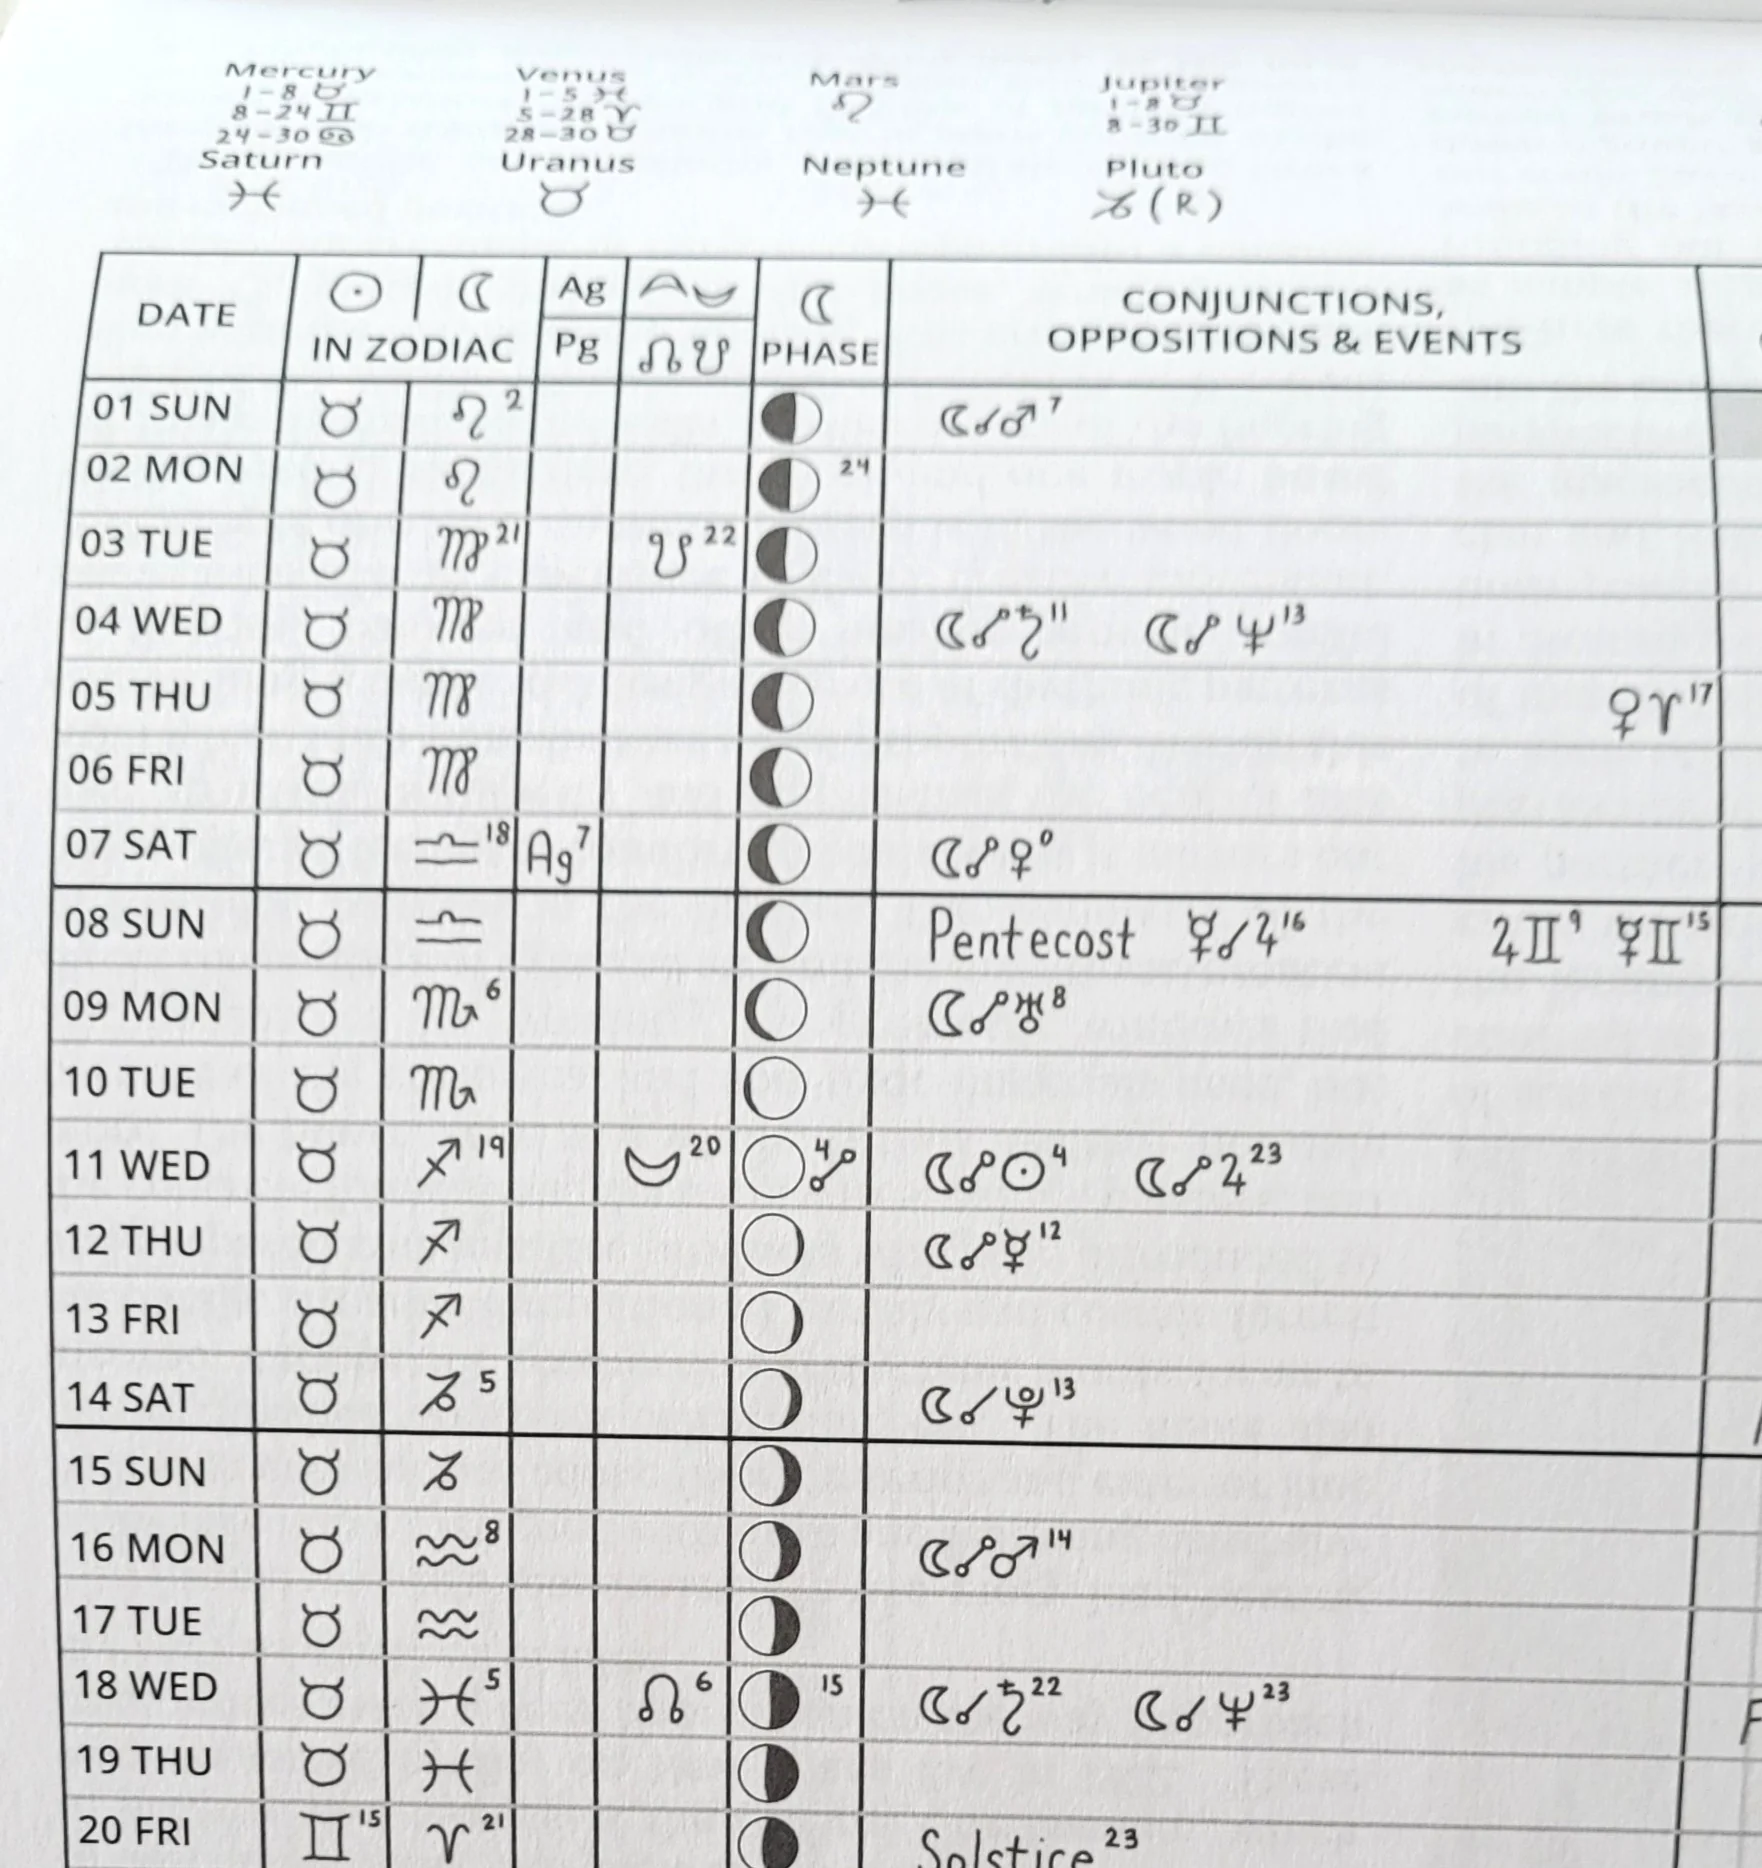 Mercury Venus Mars Jupiter
1-8 ♉ 1-5 ♓ ♌ 1-8 ♉
8-24 ♊ 5-28 ♈ 8-30 ♊
24-30 ♋ 28-30 ♉
Saturn Uranus Neptune Pluto
♓ ♉ ♓ ♑ (R)
DATE ☉ ☾ IN ZODIAC Ag Pg ☊ ☋ ☾ PHASE CONJUNCTIONS, OPPOSITIONS & EVENTS
01 SUN ♉ ♌ 2 ☾☌♂ 7
02 MON ♉ ♌ 24
03 TUE ♉ ♍ 21 ☋ 22
04 WED ♉ ♍ ☾☍♄ 11 ☾☍♆ 13
05 THU ♉ ♍ ♀♈ 17
06 FRI ♉ ♍
07 SAT ♉ ♎ 18 Ag 7 ☾☍♀ 0
08 SUN ♉ ♎ Pentecost ☿☌♃ 16 ♃♊ 9 ☿♊ 15
09 MON ♉ ♏ 6 ☾☍♅ 8
10 TUE ♉ ♏
11 WED ♉ ♐ 19 20 4 ☍ ☾☍☉ 4 ☾☍♃ 23
12 THU ♉ ♐ ☾☍☿ 12
13 FRI ♉ ♐
14 SAT ♉ ♑ 5 ☾☌♇ 13
15 SUN ♉ ♑
16 MON ♉ ♒ 8 ☾☍♂ 14
17 TUE ♉ ♒
18 WED ♉ ♓ 5 ☊ 6 15 ☾☌♄ 22 ☾☌♆ 23
19 THU ♉ ♓
20 FRI ♊ 15 ♈ 21 Solstice 23